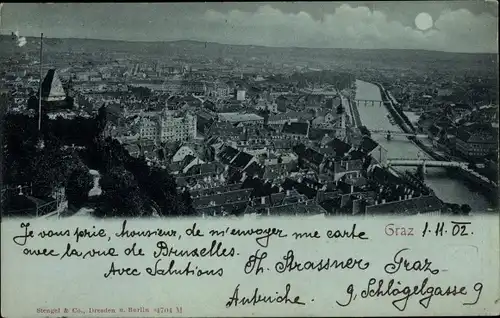 Graz 1. 11. 02.
Je vous prie, Monsieur, de m'envoyer une carte
avec la vue de Bruxelles.
Avec Salutions
Th. Strassner Graz
Autriche. 9, Schlögelgasse 9
Stengel & Co., Dresden u. Berlin 14701 M